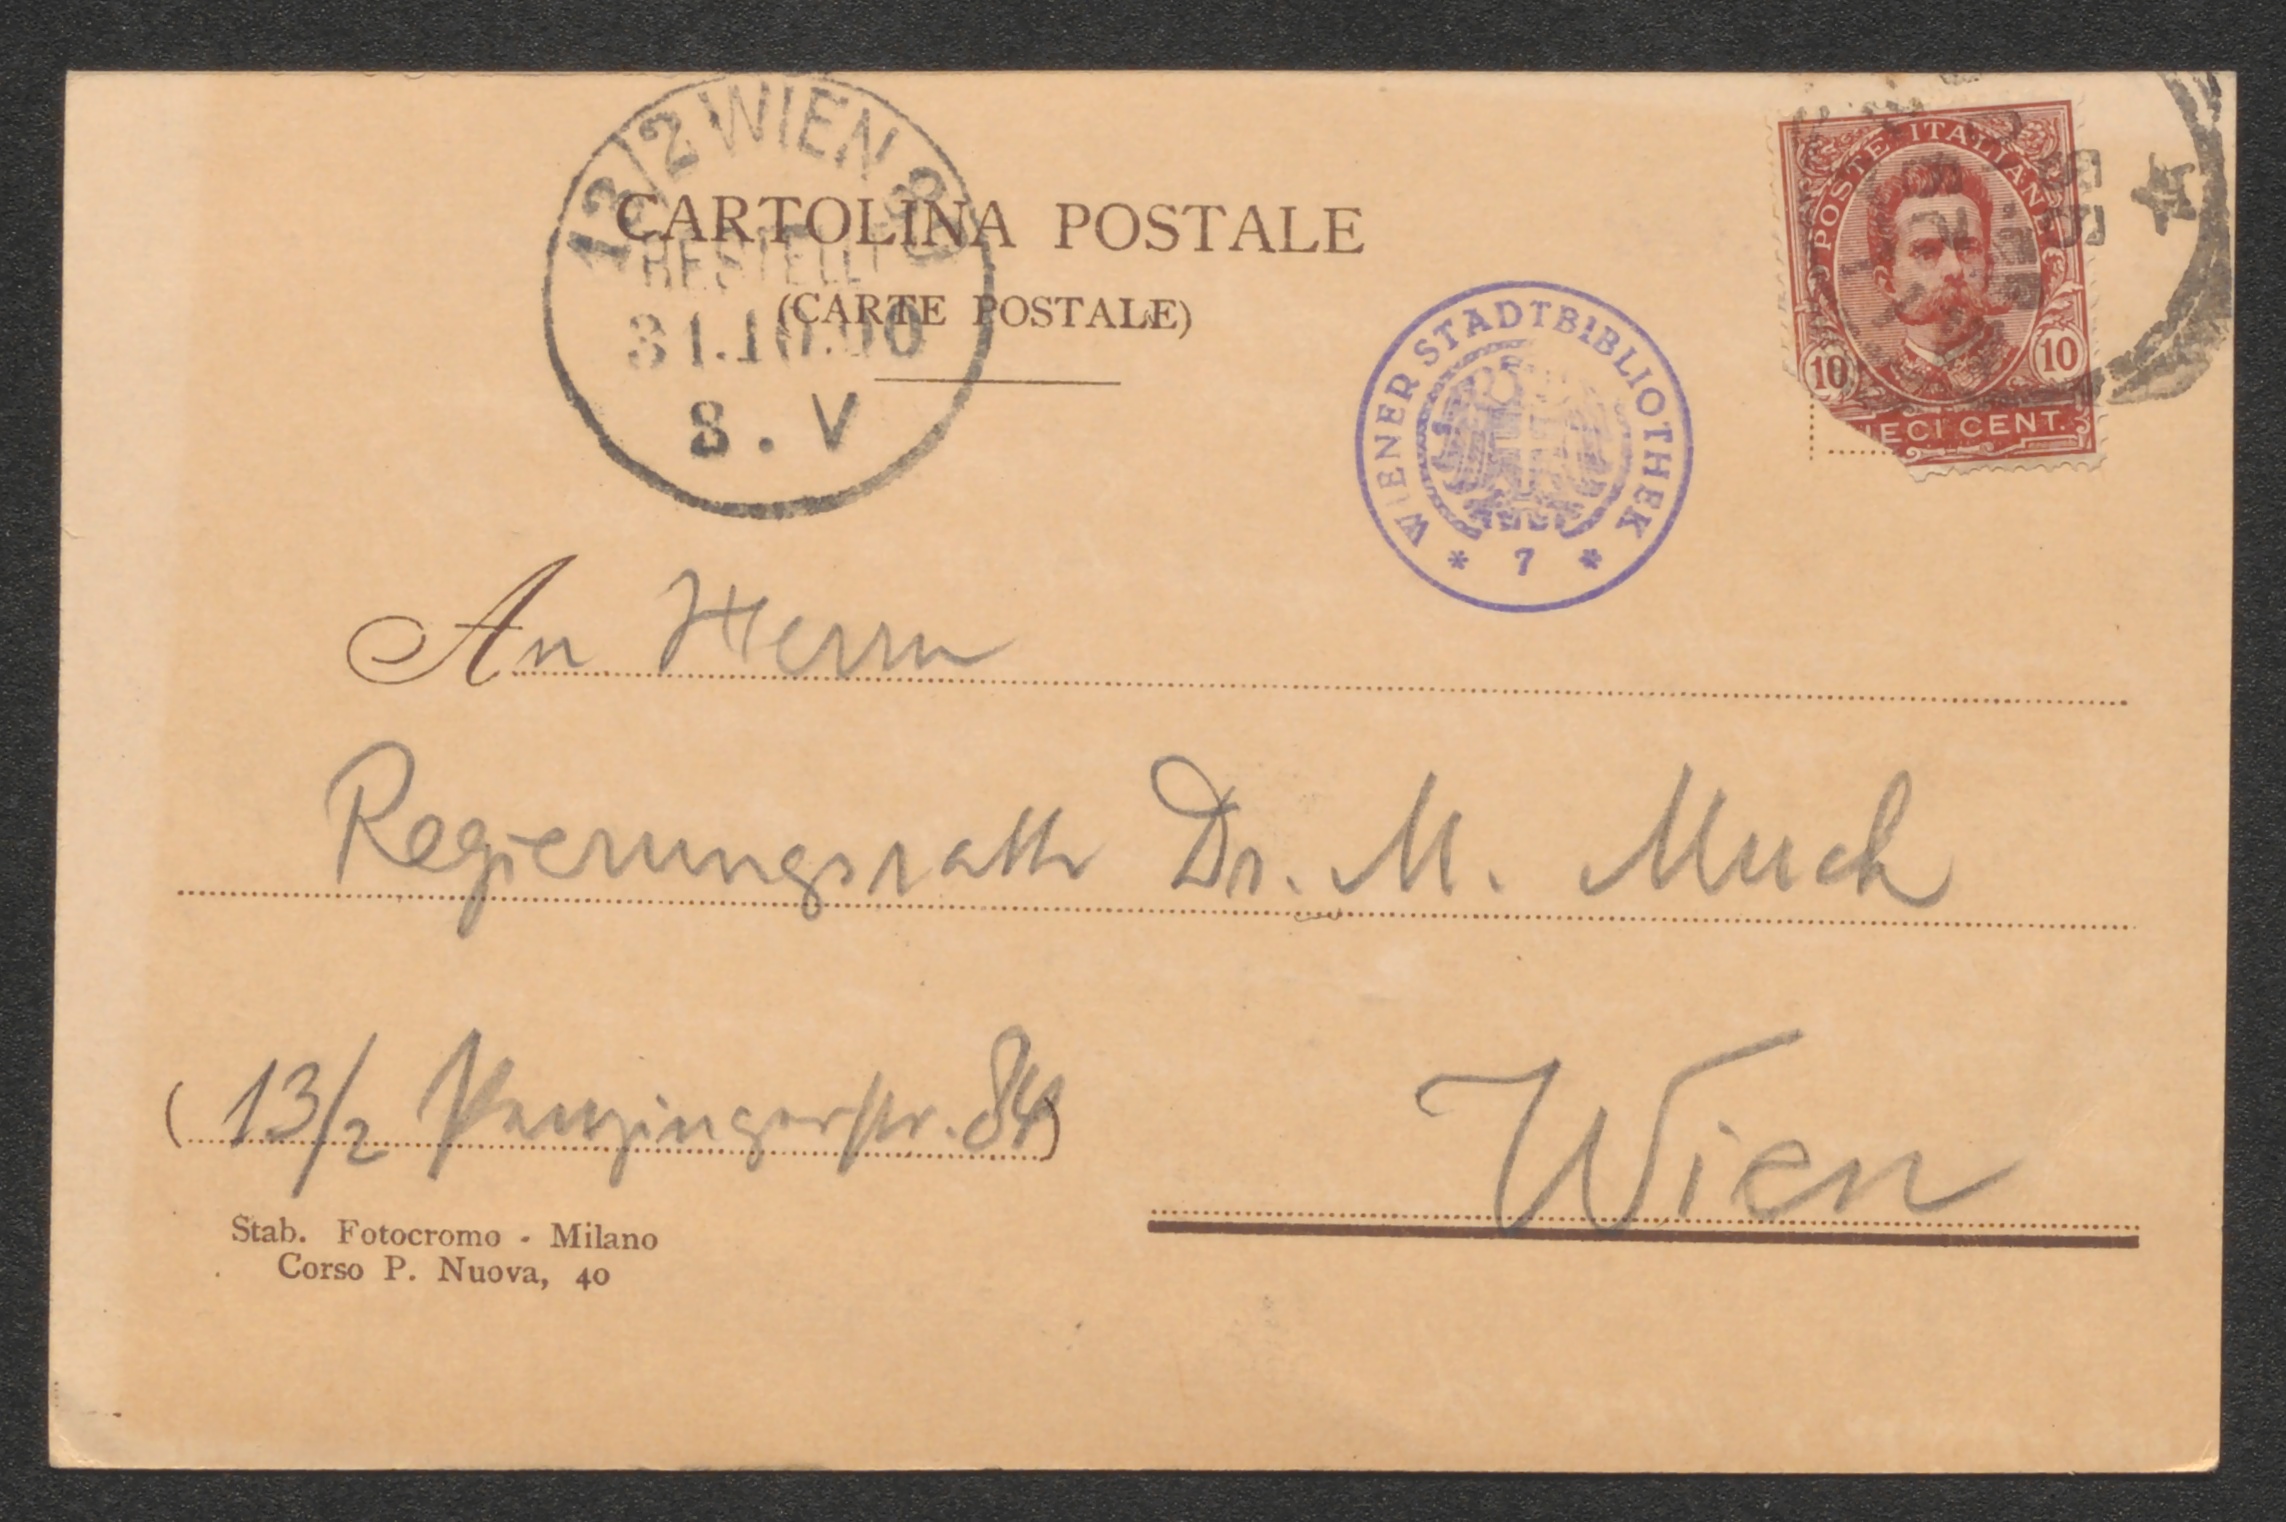 13/2 WIEN 89
BESTELLT
31.10.00
8. V
CARTOLINA POSTALE
(CARTE POSTALE)
WIENER STADTBIBLIOTHEK
* 7 *
POSTE ITALIANE
10 10
IECI CENT.
An Herrn
Regierungsrath Dr. M. Much
(13/2 Penzingerstr. 84)
Wien
Stab. Fotocromo - Milano
Corso P. Nuova, 40